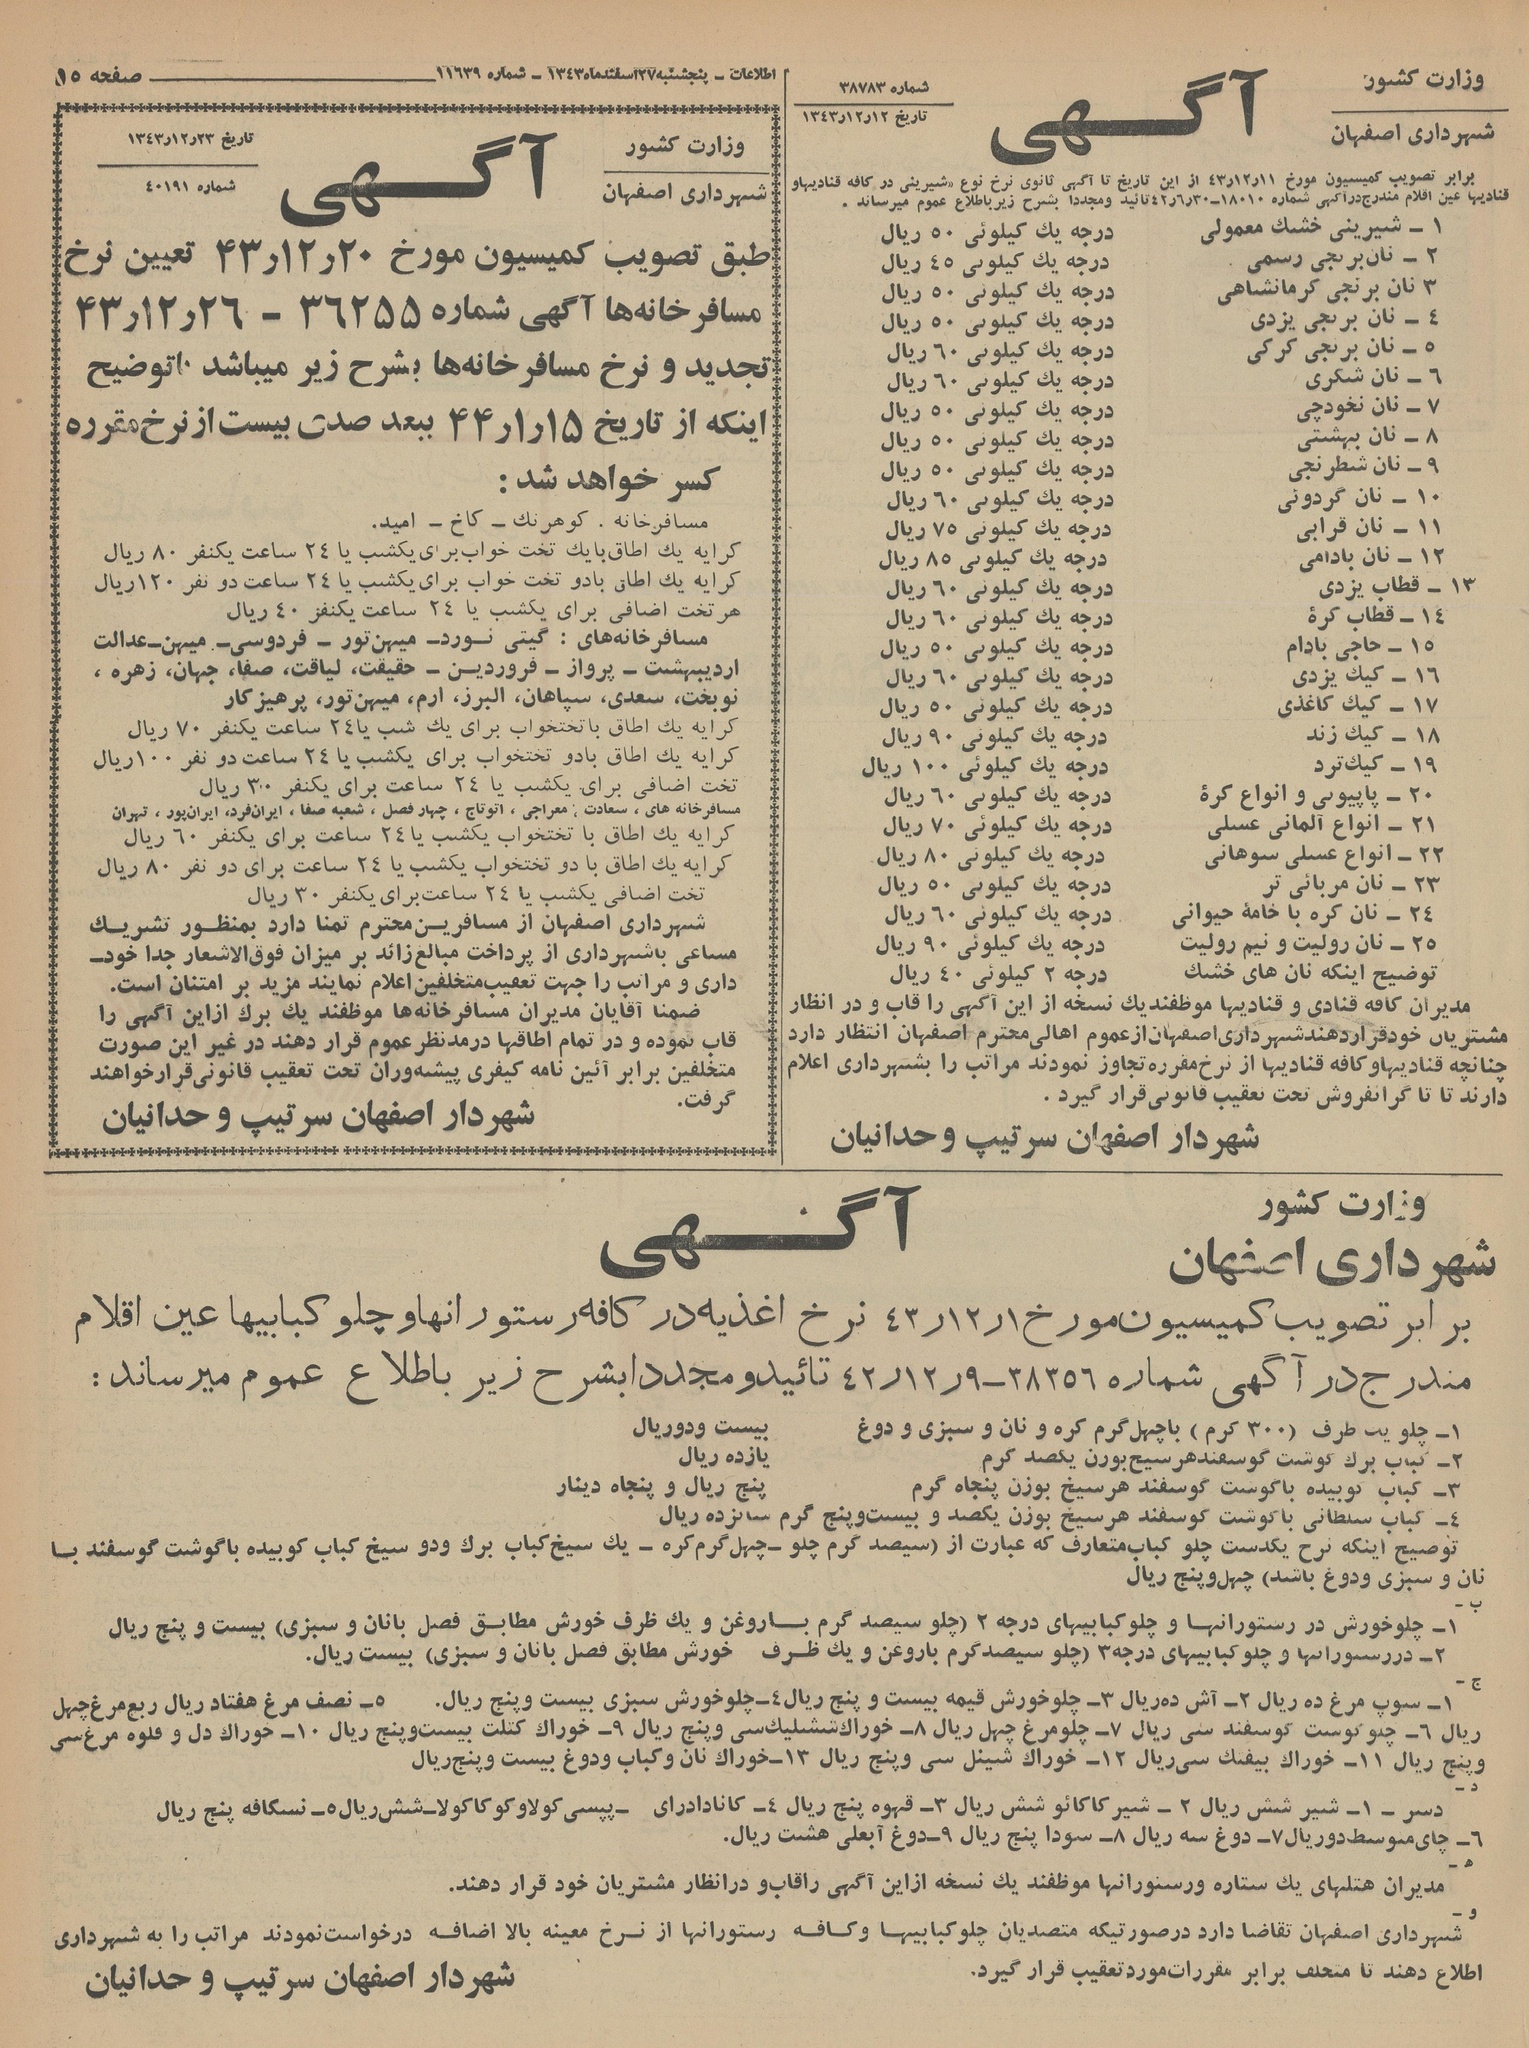 اطلاعات ـ پنجشنبه ۲۷ اسفندماه ۱۳۴۳ ـ شماره ۱۱۶۳۹
صفحه ۱۵
وزارت کشور
شهرداری اصفهان
آگهی
شماره ۳۸۷۸۳
تاریخ ۱۲ر۱۲ر۱۳۴۳
برابر تصویب کمیسیون مورخ ۱۱ر۱۲ر۴۳ از این تاریخ تا آگهی ثانوی نرخ نوع «شیرینی در کافه قنادیها و
قنادیها عین اقلام مندرج در آگهی شماره ۱۸۰۱۰ـ۳۰ر۶ر۴۲ تائید و مجددا بشرح زیر باطلاع عموم میرساند .
۱ ـ شیرینی خشک معمولی درجه یك کیلوئی ۵۰ ریال
۲ ـ نان برنجی رسمی درجه یك کیلوئی ۴۵ ریال
۳ نان برنجی کرمانشاهی درجه یك کیلوئی ۵۰ ریال
۴ ـ نان برنجی یزدی درجه یك کیلوئی ۵۰ ریال
۵ ـ نان برنجی کرکی درجه یك کیلوئی ۶۰ ریال
۶ ـ نان شکری درجه یك کیلوئی ۶۰ ریال
۷ ـ نان نخودچی درجه یك کیلوئی ۵۰ ریال
۸ ـ نان بهشتی درجه یك کیلوئی ۵۰ ریال
۹ ـ نان شطرنجی درجه یك کیلوئی ۵۰ ریال
۱۰ ـ نان گردوئی درجه یك کیلوئی ۶۰ ریال
۱۱ ـ نان قرابی درجه یك کیلوئی ۷۵ ریال
۱۲ ـ نان بادامی درجه یك کیلوئی ۸۵ ریال
۱۳ ـ قطاب یزدی درجه یك کیلوئی ۶۰ ریال
۱۴ ـ قطاب کرهٔ درجه یك کیلوئی ۶۰ ریال
۱۵ ـ حاجی بادام درجه یك کیلوئی ۵۰ ریال
۱۶ ـ کیك یزدی درجه یك کیلوئی ۶۰ ریال
۱۷ ـ کیك کاغذی درجه یك کیلوئی ۵۰ ریال
۱۸ ـ کیك زند درجه یك کیلوئی ۹۰ ریال
۱۹ ـ کیك ترد درجه یك کیلوئی ۱۰۰ ریال
۲۰ ـ پاپیونی و انواع کرهٔ درجه یك کیلوئی ۶۰ ریال
۲۱ ـ انواع آلمانی عسلی درجه یك کیلوئی ۷۰ ریال
۲۲ ـ انواع عسلی سوهانی درجه یك کیلوئی ۸۰ ریال
۲۳ ـ نان مربائی تر درجه یك کیلوئی ۵۰ ریال
۲۴ ـ نان کره با خامهٔ حیوانی درجه یك کیلوئی ۶۰ ریال
۲۵ ـ نان رولیت و نیم رولیت درجه یك کیلوئی ۹۰ ریال
توضیح اینکه نان های خشك درجه ۲ کیلوئی ۴۰ ریال
مدیران کافه قنادی و قنادیها موظفند یك نسخه از این آگهی را قاب و در انظار
مشتریان خود قرار دهند شهرداری اصفهان از عموم اهالی محترم اصفهان انتظار دارد
چنانچه قنادیها و کافه قنادیها از نرخ مقرره تجاوز نمودند مراتب را بشهرداری اعلام
دارند تا تا گرانفروش تحت تعقیب قانونی قرار گیرد .
شهردار اصفهان سرتیپ وحدانیان
وزارت کشور
شهرداری اصفهان
آگهی
تاریخ ۲۳ر۱۲ر۱۳۴۳
شماره ۴۰۱۹۱
طبق تصویب کمیسیون مورخ ۲۰ر۱۲ر۴۳ تعیین نرخ
مسافرخانه‌ها آگهی شماره ۳۶۲۵۵ ـ ۲۶ر۱۲ر۴۳
تجدید و نرخ مسافرخانه‌ها بشرح زیر میباشد باتوضیح
اینکه از تاریخ ۱۵ر۱ر۴۴ ببعد صدی بیست از نرخ مقرره
کسر خواهد شد :
مسافرخانه . کوهرنك ـ کاخ ـ امید.
کرایه یك اطاق بایك تخت خواب برای یکشب یا ۲۴ ساعت یکنفر ۸۰ ریال
کرایه یك اطاق بادو تخت خواب برای یکشب یا ۲۴ ساعت دو نفر ۱۲۰ ریال
هر تخت اضافی برای یکشب یا ۲۴ ساعت یکنفر ۴۰ ریال
مسافرخانه‌های : گیتی نـورد ـ میهن‌تور ـ فردوسی ـ میهن ـ عدالت
اردیبهشت ـ پرواز ـ فروردین ـ حقیقت، لیاقت، صفا، جهان، زهره ،
نوبخت، سعدی، سپاهان، البرز، ارم، میهن‌تور، پرهیزکار
کرایه یك اطاق باتختخواب برای یك شب یا ۲۴ ساعت یکنفر ۷۰ ریال
کرایه یك اطاق بادو تختخواب برای یکشب یا ۲۴ ساعت دو نفر ۱۰۰ ریال
تخت اضافی برای یکشب یا ۲۴ ساعت برای یکنفر ۳۰ ریال
مسافرخانه های ، سعادت ، معراجی ، اتوتاج ، چهار فصل ، شعبه صفا ، ایران‌فرد، ایران‌پور ، تهران
کرایه یك اطاق با تختخواب یکشب یا ۲۴ ساعت برای یکنفر ۶۰ ریال
کرایه یك اطاق با دو تختخواب یکشب یا ۲۴ ساعت برای دو نفر ۸۰ ریال
تخت اضافی یکشب یا ۲۴ ساعت برای یکنفر ۳۰ ریال
شهرداری اصفهان از مسافرین محترم تمنا دارد بمنظور تشریك
مساعی باشهرداری از پرداخت مبالغ زائد بر میزان فوق‌الاشعار جدا خود‌ـ
داری و مراتب را جهت تعقیب متخلفین اعلام نمایند مزید بر امتنان است.
ضمنا آقایان مدیران مسافرخانه‌ها موظفند یك برك ازاین آگهی را
قاب نموده و در تمام اطاقها درمدنظر عموم قرار دهند در غیر این صورت
متخلفین برابر آئین نامه کیفری پیشه‌وران تحت تعقیب قانونی قرار خواهند
گرفت.
شهردار اصفهان سرتیپ وحدانیان
وزارت کشور
شهرداری اصفهان
آگهی
برابر تصویب کمیسیون مورخ ۱ر۱۲ر۴۳ نرخ اغذیه در کافه رستورانها و چلو کبابیها عین اقلام
مندرج در آگهی شماره ۳۸۳۵۶ـ۹ر۱۲ر۴۲ تائید و مجددا بشرح زیر باطلاع عموم میرساند :
۱ـ چلو یك ظرف (۳۰۰ گرم ) باچهل گرم کره و نان و سبزی و دوغ بیست و دو ریال
۲ـ کباب برك گوشت گوسفند هر سیخ بوزن یکصد گرم یازده ریال
۳ـ کباب کوبیده باگوشت گوسفند هر سیخ بوزن پنجاه گرم پنج ریال و پنجاه دینار
۴ـ کباب سلطانی باگوشت گوسفند هرسیخ بوزن یکصد و بیست و پنج گرم شانزده ریال
توضیح اینکه نرخ یکدست چلو کباب متعارف که عبارت از (سیصد گرم چلو ـ چهل گرم کره ـ یك سیخ کباب برك ودو سیخ کباب کوبیده باگوشت گوسفند بـا
نان و سبزی ودوغ باشد) چهل و پنج ریال
ب ـ
۱ـ چلوخورش در رستورانهـا و چلو کبابیهای درجه ۲ (چلو سیصد گرم بـاروغن و یك ظرف خورش مطابـق فصل بانان و سبزی) بیست و پنج ریال
۲ـ در رستورانها و چلو کبابیهای درجه ۳ (چلو سیصد گرم باروغن و یك ظـرف خورش مطابق فصل بانان و سبزی) بیست ریال.
ج ـ
۱ـ سوپ مرغ ده ریال ۲ـ آش ده ریال ۳ـ چلوخورش قیمه بیست و پنج ریال ۴ـ چلوخورش سبزی بیست و پنج ریال. ۵ـ نصف مرغ هفتاد ریال ربع مرغ چهل
ریال ۶ـ چلو گوشت گوسفند سی ریال ۷ـ چلومرغ چهل ریال ۸ـ خوراك ششلیك سی و پنج ریال ۹ـ خوراك کتلت بیست و پنج ریال ۱۰ـ خوراك دل و قلوه مرغ سی
و پنج ریال ۱۱ـ خوراك بیفتك سی ریال ۱۲ـ خوراك شینل سی و پنج ریال ۱۳ـ خوراك نان و کباب ودوغ بیست و پنج ریال
د ـ
دسر ـ ۱ـ شیر شش ریال ۲ ـ شیر کاکائو شش ریال ۳ـ قهوه پنج ریال ۴ـ کانادادرای ـ پپسی کولا و کوکاکولا ـ شش ریال ۵ـ نسکافه پنج ریال
۶ـ چای متوسط دو ریال ۷ـ دوغ سه ریال ۸ـ سودا پنج ریال ۹ـ دوغ آبعلی هشت ریال.
ه ـ
مدیران هتلهای یك ستاره ورستورانها موظفند یك نسخه ازاین آگهی راقاب و درانظار مشتریان خود قرار دهند.
و ـ
شهرداری اصفهان تقاضا دارد درصورتیکه متصدیان چلوکبابیها وکـافـه رستورانها از نـرخ معینه بالا اضافـه درخواست نمودند مراتب را به شهرداری
اطلاع دهند تا متخلف برابر مقررات مورد تعقیب قرار گیرد.
شهردار اصفهان سرتیپ وحدانیان